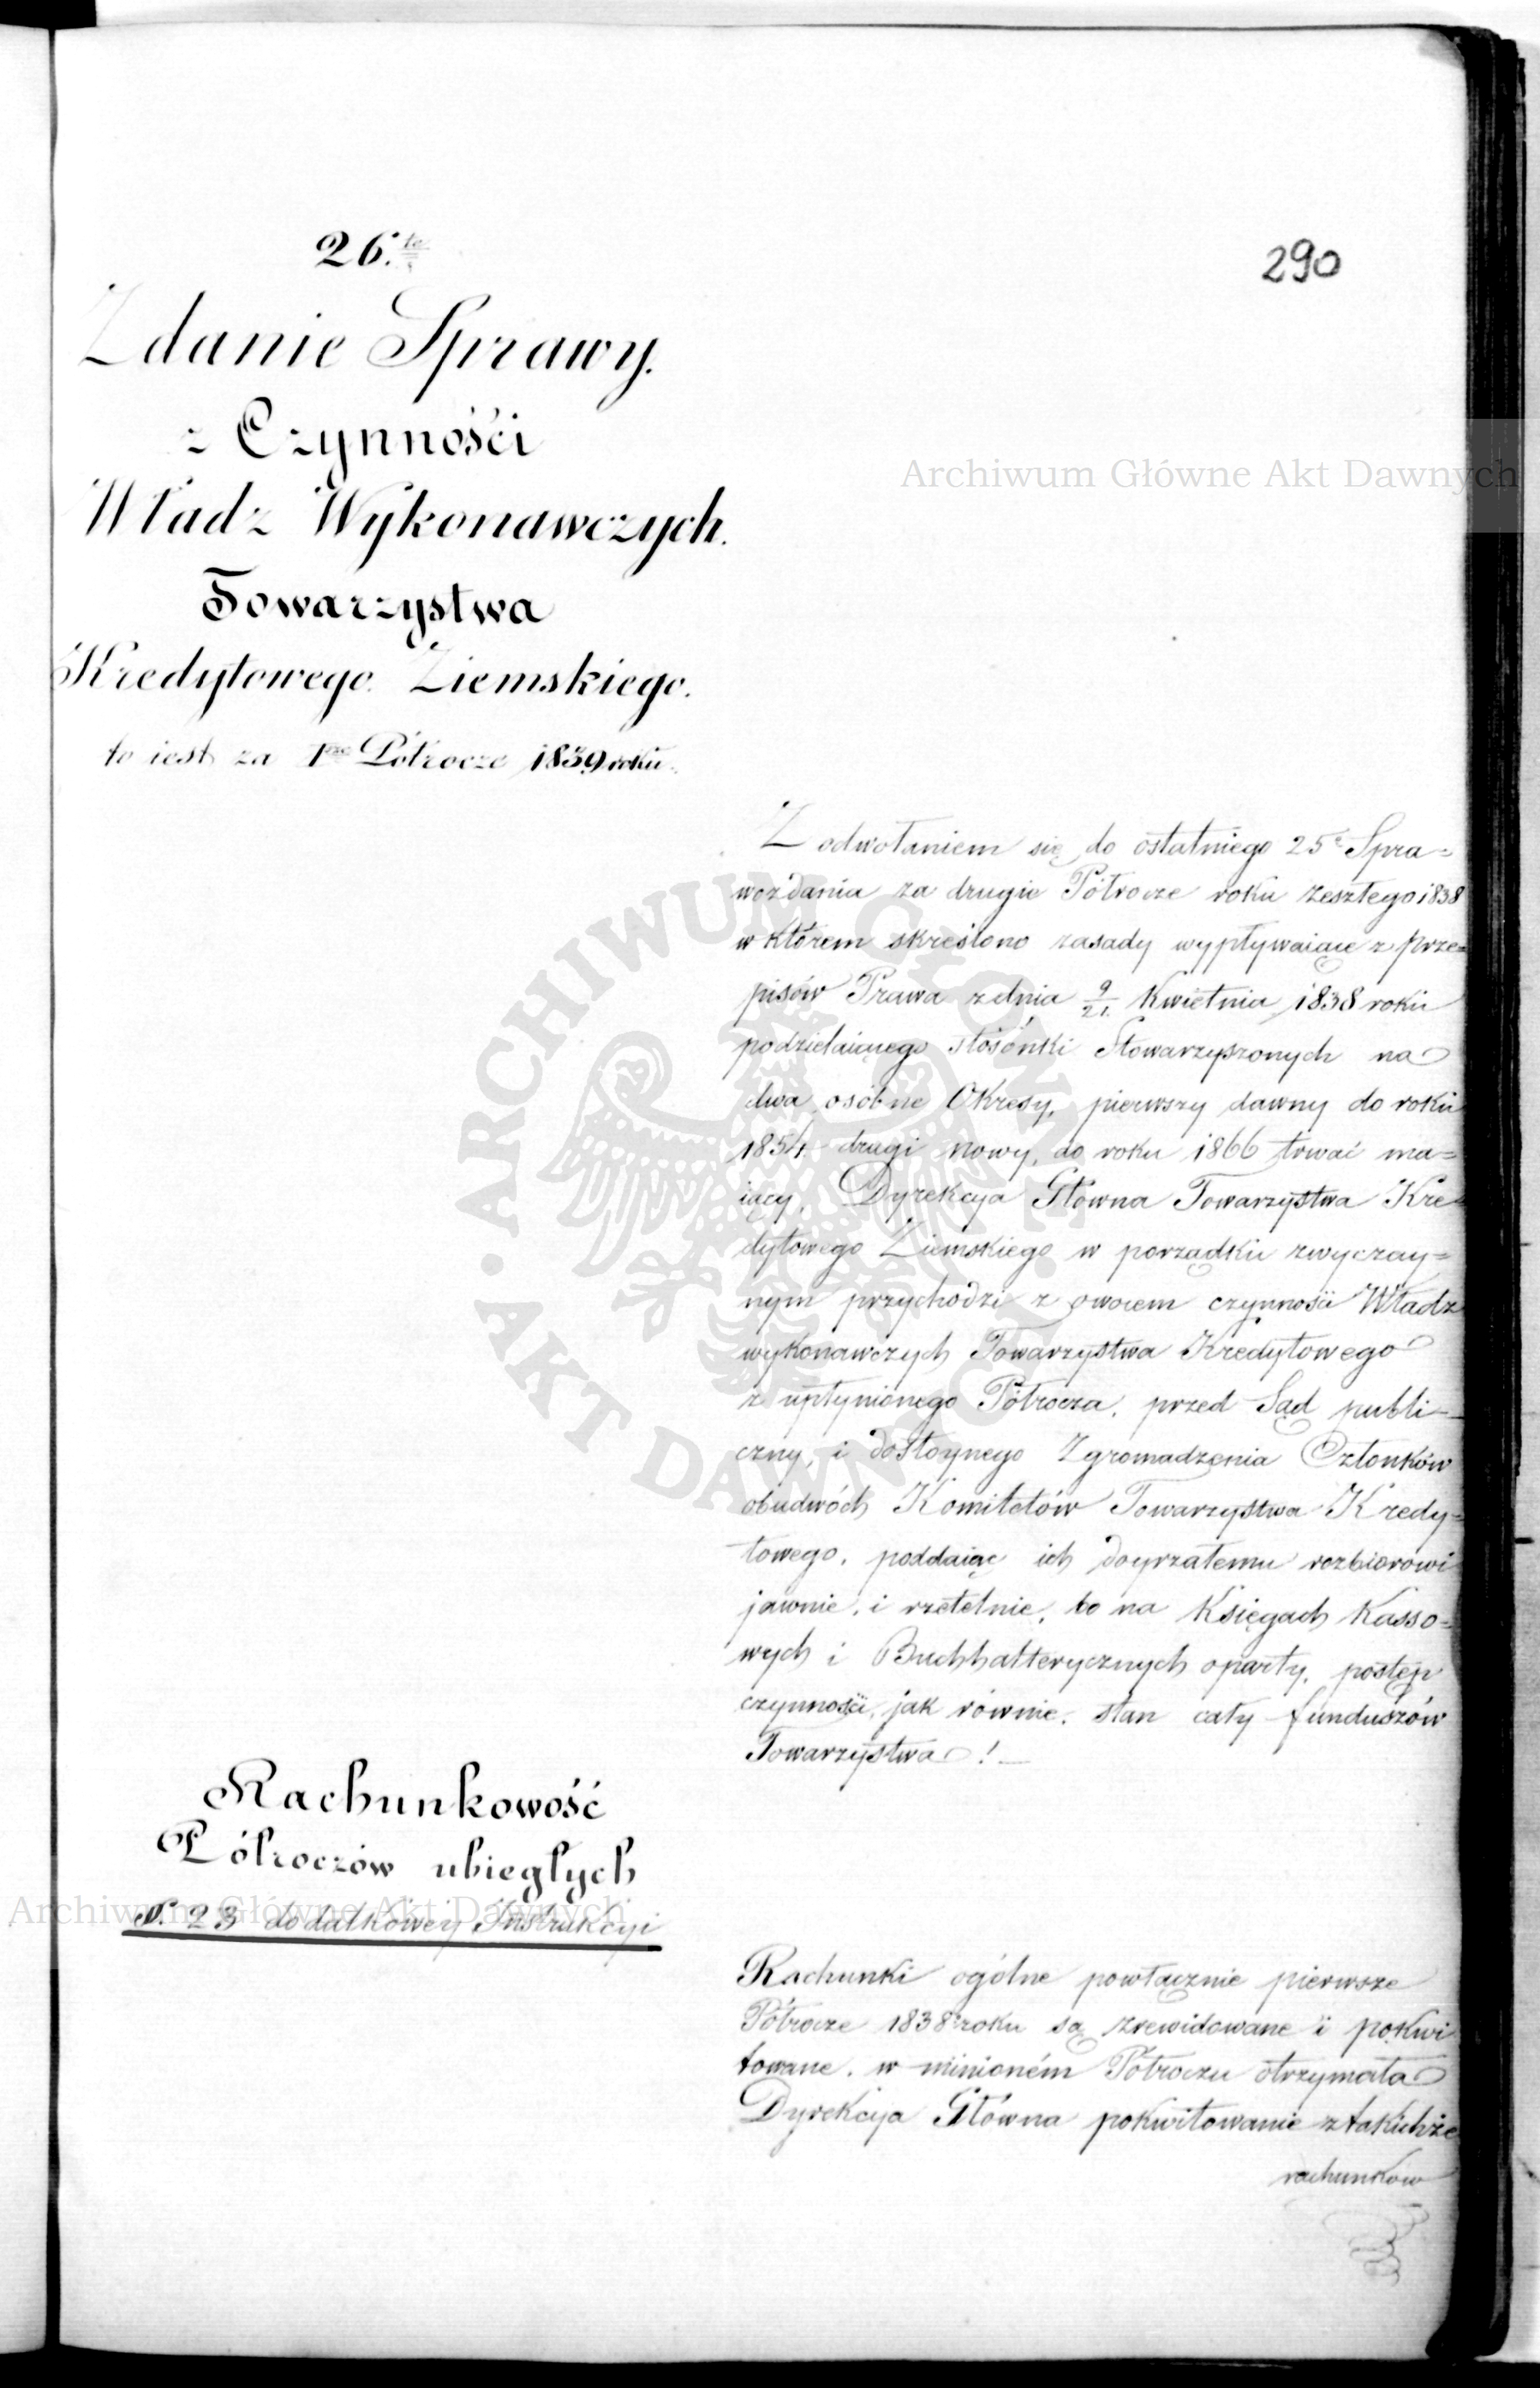 290
26.te
Zdanie Sprawy.
z Czynności
Władz Wykonawczych.
Towarzystwa
Kredytowego Ziemskiego.
to iest za 1sze Półrocze 1839 roku.
Archiwum Główne Akt Dawnych
Z odwołaniem się do ostatniego 25e Spra=
wozdania za drugie Półrocze roku zeszłego 1838
w którem skreślono zasady wypływaiące z prze=
pisów Prawa z dnia 9/21. Kwietnia 1838 roku
podzielaiącego stósónki Stowarzyszonych na
dwa osóbne Okresy, pierwszy dawny do roku
1854 drugi nowy, do roku 1866 trwać ma=
iący, Dyrekcya Główna Towarzystwa Kre=
dytowego Ziemskiego w porządku zwyczay=
nym przychodzi z owocem czynności Władz
wykonawczych Towarzystwa Kredytowego
z upłynionego Półrocza, przed Sąd publi=
czny, i dostoynego Zgromadzenia Członków
obudwóch Komitetów Towarzystwa Kredy=
towego, poddaiąc ich doyrzałemu rozbiorowi
jawnie, i rzetelnie, bo na Księgach Kasso=
wych i Buchhalterycznych oparty, postęp
czynności, jak równie, stan cały funduszów
Towarzystwa!—
Rachunkowość
Półroczów ubiegłych
N. 23 dodatkowey Instrukcyi
Archiwum Główne Akt Dawnych
Rachunki ogólne powłącznie pierwsze
Półrocze 1838 roku są zrewidowane i pokwi
towane. w minioném Półroczu otrzymała
Dyrekcya Główna pokwitowanie z takichże
rachunków
ARCHIWUM GŁÓWNE AKT DAWNYCH